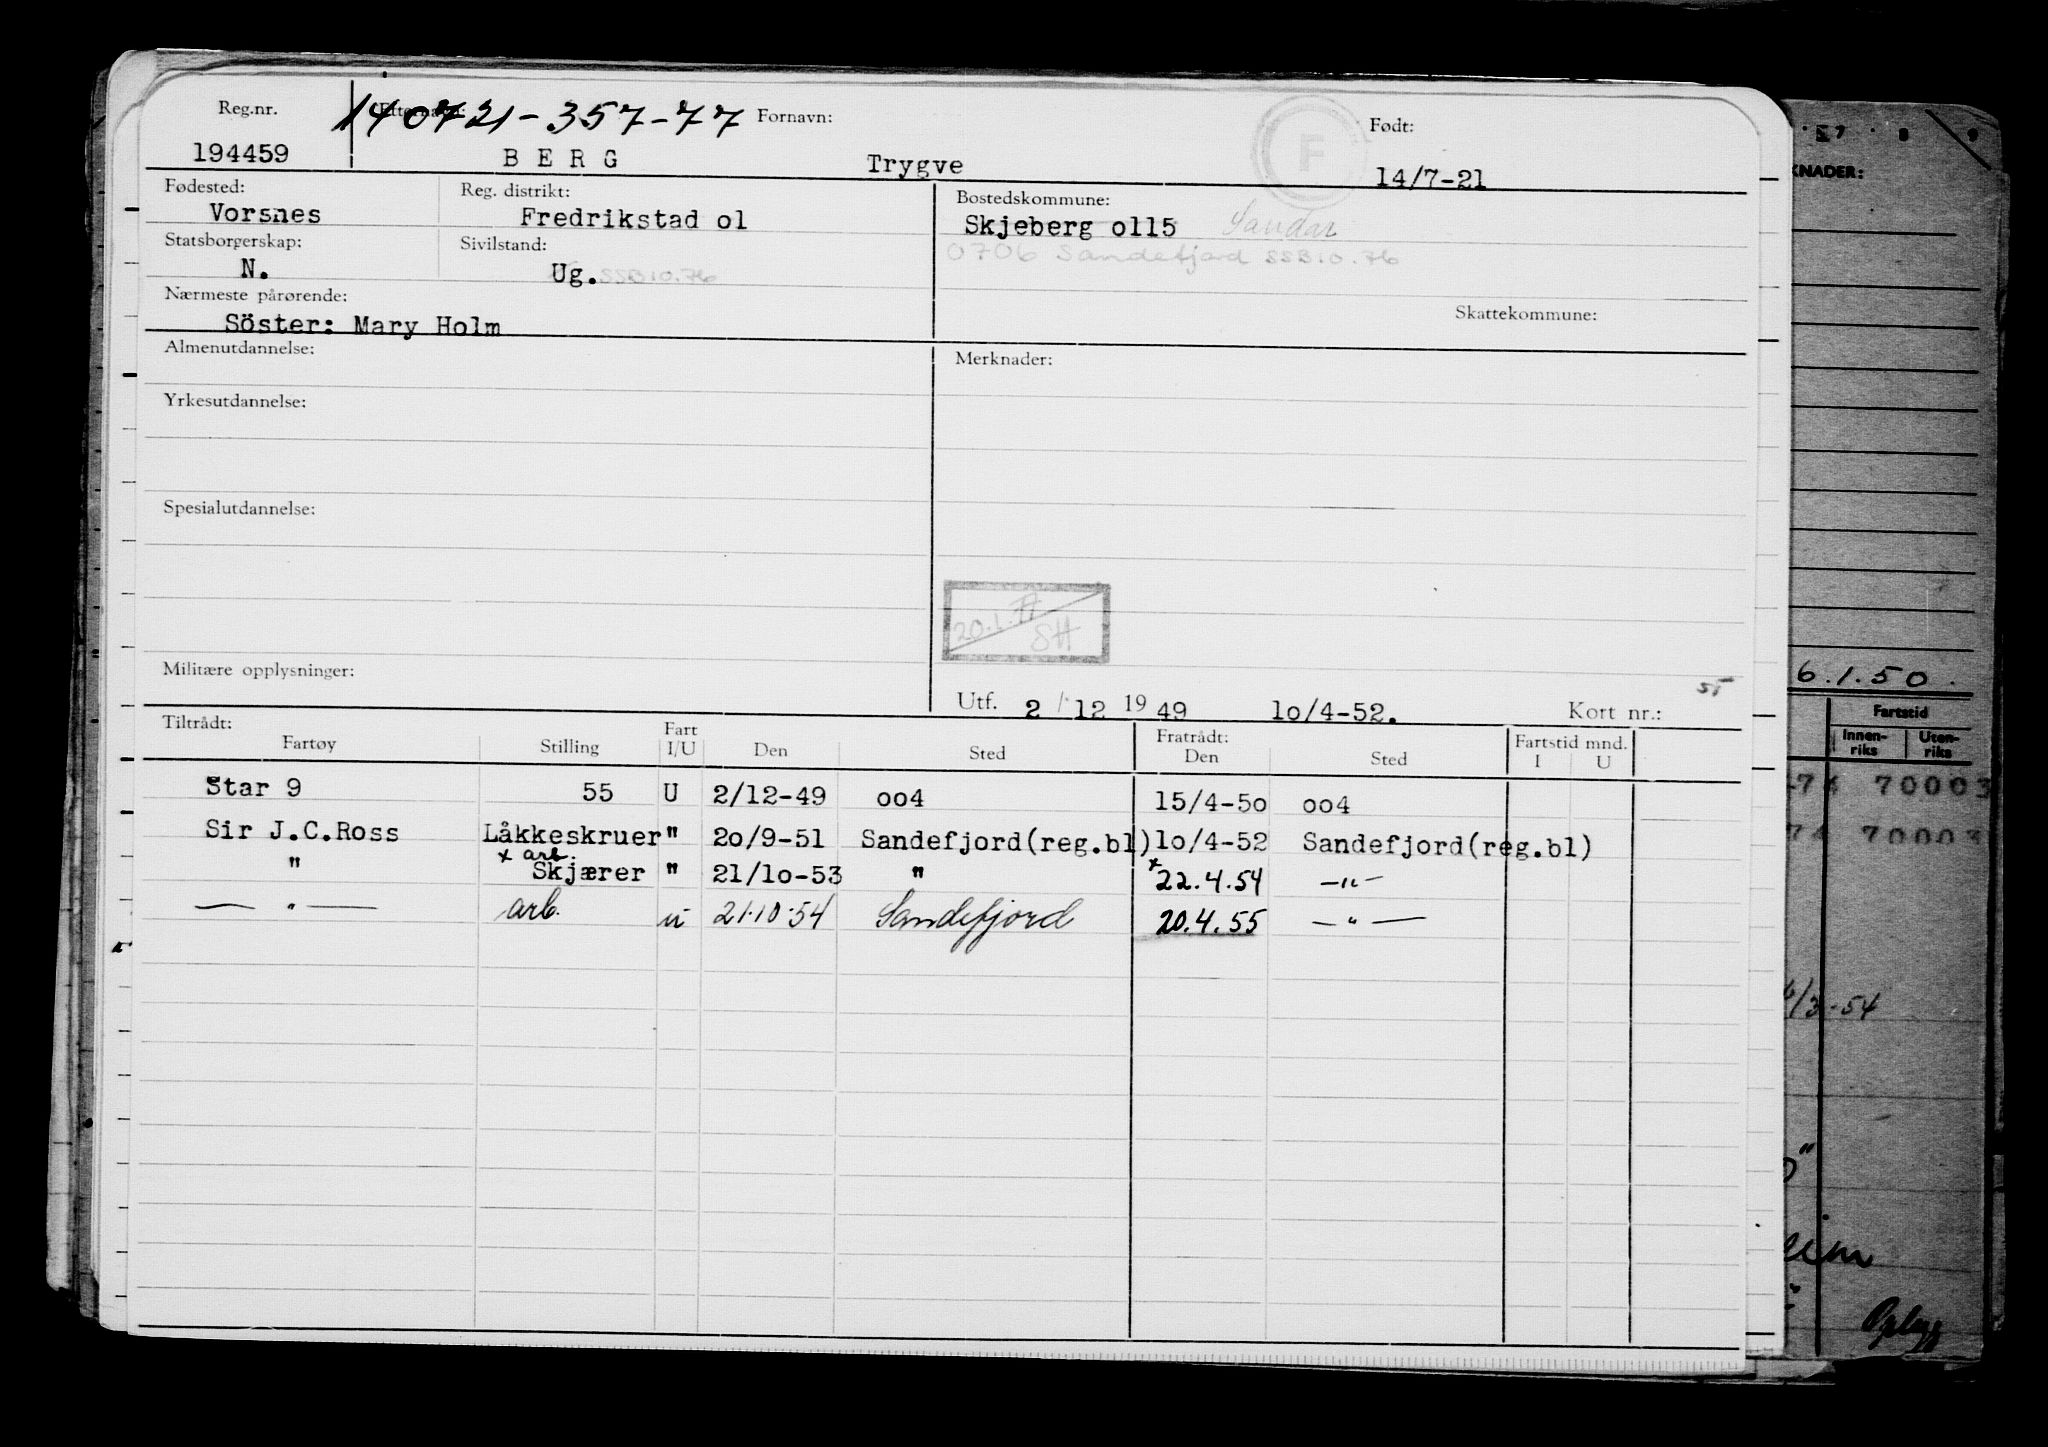 Reg.nr. Etternavn: 140721-357-77 Fornavn: F Født:
194459 BERG Trygve 14/7-21
Fødested: Reg. distrikt: Bostedskommune:
Vorsnes Fredrikstad o1 Skjeberg o115 Sandar
Statsborgerskap: Sivilstand: 0706 Sandefjord SSB10.76
N. Ug. SSB10.76
Nærmeste pårørende: Skattekommune:
Söster: Mary Holm
Almenutdannelse: Merknader:
Yrkesutdannelse:
Spesialutdannelse:
20.1.77
SH
Militære opplysninger:
Utf. 2/12 1949 lo/4-52. Kort nr.:
Tiltrådt: Fart Fratrådt: Fartstid mnd.
Fartøy Stilling I/U Den Sted Den Sted I U
Star 9 55 U 2/12-49 oo4 15/4-5o oo4
Sir J.C.Ross Låkkeskruer " 2o/9-51 Sandefjord(reg.bl) lo/4-52 Sandefjord(reg.bl)
x arb.
" Skjærer " 21/lo-53 " x 22.4.54 —"—
—"— arb. u 21.10.54 Sandefjord 20.4.55 —"—
7 8 9
KNADER:
6.1.50.
Fartstid
Innen-riks Uten-riks
74 70003
74 70003
/3-54